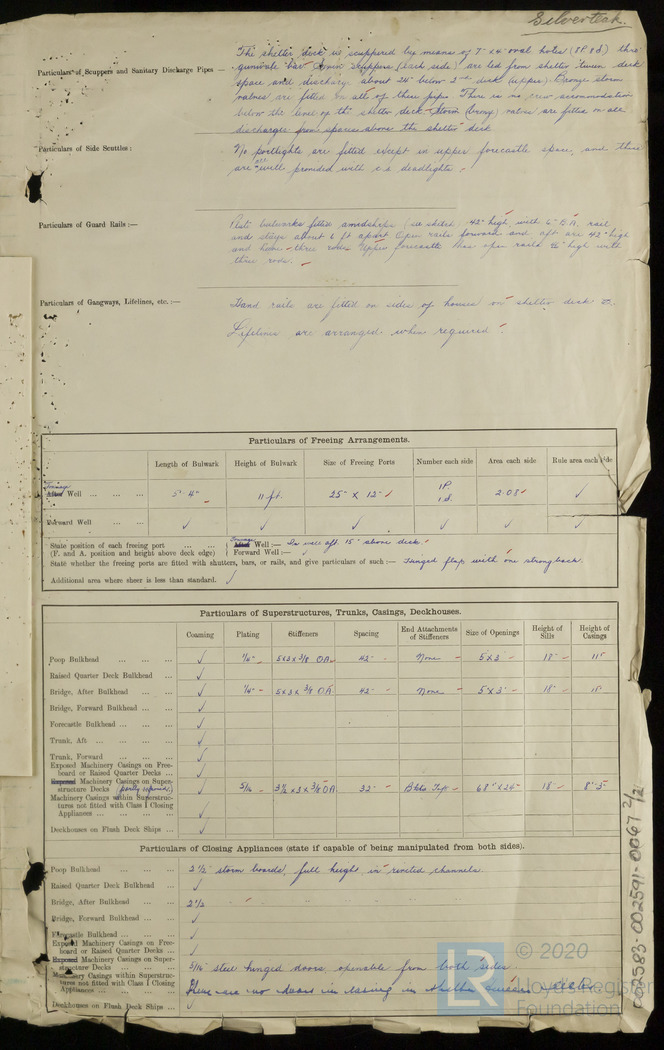 Silverteak.
Particulars of Scuppers and Sanitary Discharge Pipes — The shelter deck is scuppered by means of 7" x 4" oval holes (8P. 8S) thro
gunwale bar. scuppers (each side) are led from shelter 'tween deck
space and discharge about 24" below 2nd deck (upper). Bronze storm
valves are fitted on all of these pipes. There is no crew accommodation
below the level of the shelter deck. Storm (bronze) valves are fitted on all
discharges from spaces above the shelter deck
Particulars of Side Scuttles: No portlights are fitted except in upper forecastle space, and these
are all well provided with c.s. deadlights.
Particulars of Guard Rails:— bulwarks fitted amidships 42" high with 6" B.A. rail
and stays about 6 ft apart. Open rails forward and aft are 42" high
and have three rods. Upper forecastle has open rails high with
three rods.
Particulars of Gangways, Lifelines, etc.:— Hand rails are fitted on sides of houses on shelter deck &.
Lifelines are arranged when required.
Particulars of Freeing Arrangements.
Length of Bulwark Height of Bulwark Size of Freeing Ports Number each side Area each side Rule area each side
After Well ... ... ... 5'. 4" 11 ft. 25" x 12" 1P. 1S. 2.08 ✓
Forward Well ... ... ✓ ✓ ✓ ✓ ✓ ✓
State position of each freeing port ... ... After Well:— In well aft 15" above deck.
(F. and A. position and height above deck edge) Forward Well:—
State whether the freeing ports are fitted with shutters, bars, or rails, and give particulars of such:— flap with one strongback.
Additional area where sheer is less than standard. ✓
Particulars of Superstructures, Trunks, Casings, Deckhouses.
Coaming Plating Stiffeners Spacing End Attachments of Stiffeners Size of Openings Height of Sills Height of Casings
Poop Bulkhead ... ... ... ✓ 1/4" 5 x 3 x 3/8 O.A. 42" None 5 x 3' 18" 11'
Raised Quarter Deck Bulkhead ... ✓
Bridge, After Bulkhead ... ... ✓ 1/4" 5 x 3 x 3/8 O.A. 42" None 5' x 3' 18"
Bridge, Forward Bulkhead ... ... ✓
Forecastle Bulkhead ... ... ... ✓
Trunk, Aft ... ... ... ... ✓
Trunk, Forward ... ... ... ✓
Exposed Machinery Casings on Free-
board or Raised Quarter Decks ... ✓
Exposed Machinery Casings on Super-
structure Decks ✓ 5/16 3 1/2 x 3 x 3/8 O.A. 68" x 24" 18" 8'. 3"
Machinery Casings within Superstruc-
tures not fitted with Class I Closing
Appliances ... ... ... ... ✓
Deckhouses on Flush Deck Ships ... ✓
Particulars of Closing Appliances (state if capable of being manipulated from both sides).
Poop Bulkhead ... ... ... 2 1/2" storm boards, full height in riveted channels.
Raised Quarter Deck Bulkhead ... ✓
Bridge, After Bulkhead ... ... 2 1/2 " " " "
Bridge, Forward Bulkhead ... ... ✓
Forecastle Bulkhead ... ... ... ✓
Exposed Machinery Casings on Free-
board or Raised Quarter Decks ... ✓
Exposed Machinery Casings on Super-
structure Decks ... ... ... 5/16 steel hinged doors, openable from both sides.
Machinery Casings within Superstruc-
tures not fitted with Class I Closing
Appliances ... ... ... ... There are no doors in casing in shelter 'tween decks.
Deckhouses on Flush Deck Ships ... ✓
002583-002591-0067 2/2
LR © 2020
Lloyd's Register
Foundation